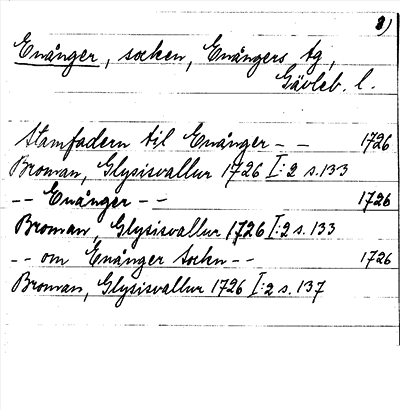 8)
Enånger, socken, Enångers tg,
Gävleb. l.
Stamfadern til Enånger - - 1726
Broman, Glysisvallur 1726 I:2 s.133
-- Enånger -- 1726
Broman, Glysisvallur 1726 I:2 s.133
-- om Enånger Sockn -- 1726
Broman, Glysisvallur 1726 I:2 s.137